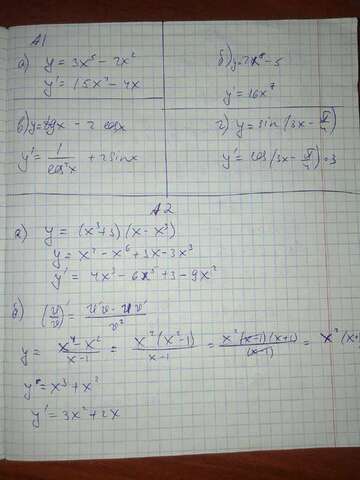 A1
а) y = 3x⁵ - 2x²
y' = 15x⁴ - 4x
б) y = 2x⁸ - 5
y' = 16x⁷
в) y = tgx - 2 cosx
y' = 1/cos²x + 2sinx
г) y = sin(3x - π/4)
y' = cos(3x - π/4) · 3
A2
а) y = (x³+3)(x - x³)
y = x⁴ - x⁶ + 3x - 3x³
y' = 4x³ - 6x⁵ + 3 - 9x²
б) (u/v)' = (u'v - uv')/v²
y = (x⁴ - x²)/(x-1) = x²(x²-1)/(x-1) = x²(x-1)(x+1)/(x-1) = x²(x+
y = x³ + x²
y' = 3x² + 2x